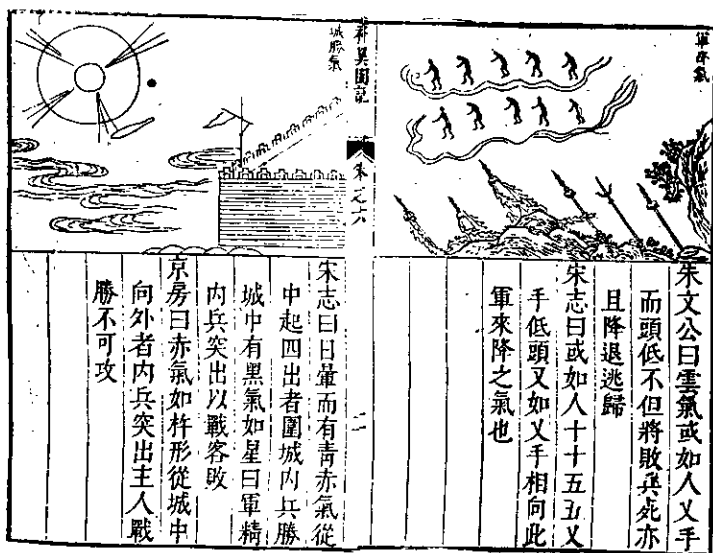 軍降氣
朱文公曰雲氣或如人叉手
而頭低不但將敗兵死亦
且降退逃歸
宋志曰或如人十十五五叉
手低頭又如叉手相向此
軍來降之氣也
城勝氣
宋志曰日暈而有靑赤氣從
中起四出者圍城內兵勝
城中有黑氣如星曰軍精
內兵突出以戰客敗
京房曰赤氣如杵形從城中
向外者內兵突出主人戰
勝不可攻
異圖記
卷之六
二